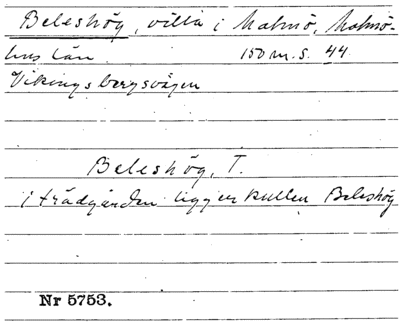 Beleshög, villa i Malmö, Malmö-
hus län. 150 m. S. 44
Vikingsbergsvägen
Beleshög, T.
i trädgården ligger kullen Beleshög
Nr 5753.